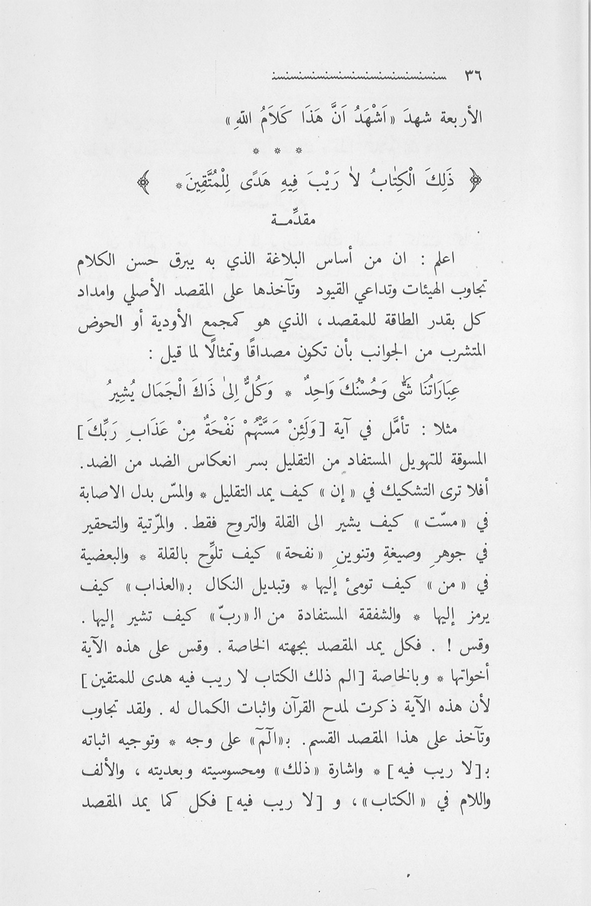 ٣٦
الأربعة شهدَ «اَشْهَدُ اَنَّ هَذَا كَلَامُ اللهِ»
* * *
﴿ ذَلِكَ الْكِتٰابُ لاٰ رَيْبَ فِيهِ هَدًى لِلْمُتَّقِينَ* ﴾
مقدِّمـة
اعلم : ان من أساس البلاغة الذي به يبرق حسن الكلام
تجاوب الهيئات وتداعي القيود وتآخذها على المقصد الأصلي وامداد
كل بقدر الطاقة للمقصد، الذي هو كمجمع الأودية أو الحوض
المتشرب من الجوانب بأن تكون مصداقًا وتمثالًا لما قيل :
عِبَارَاتُنَا شَتّٰى وَحُسْنُكَ وَاحِدٌ * وَكُلٌّ اِلىٰ ذَاكَ الْجَمَالِ يُشِيرُ
مثلا : تأمَّل في آية [وَلَئِنْ مَسَّتْهُمْ نَفْحَةٌ مِنْ عَذَابِ رَبِّكَ]
المسوقة للتهويل المستفاد من التقليل بسر انعكاس الضد من الضد.
أفلا ترى التشكيك في «إن» كيف يمد التقليل * والمسّ بدل الاصابة
في «مسّت» كيف يشير الى القلة والتروح فقط. والمرّتية والتحقير
في جوهرِ وصيغةِ وتنوينِ «نفحة» كيف تلوِّح بالقلة * والبعضية
في «من» كيف تومئ إليها * وتبديل النكال بـ«العذاب» كيف
يرمز إليها * والشفقة المستفادة من الـ«ربّ» كيف تشير إليها .
وقس ! . فكل يمد المقصد بجهته الخاصة . وقس على هذه الآية
أخواتها * وبالخاصة [الم ذلك الكتاب لا ريب فيه هدى للمتقين]
لأن هذه الآية ذكرت لمدح القرآن واثبات الكمال له . ولقد تجاوب
وتآخذ على هذا المقصد القسم. بـ«الٓمٓ» على وجه * وتوجيه اثباته
بـ[لا ريب فيه] * واشارة «ذلك» ومحسوسيته وبعديته ، والألف
واللام في «الكتاب»، و [لا ريب فيه] فكل كما يمد المقصد